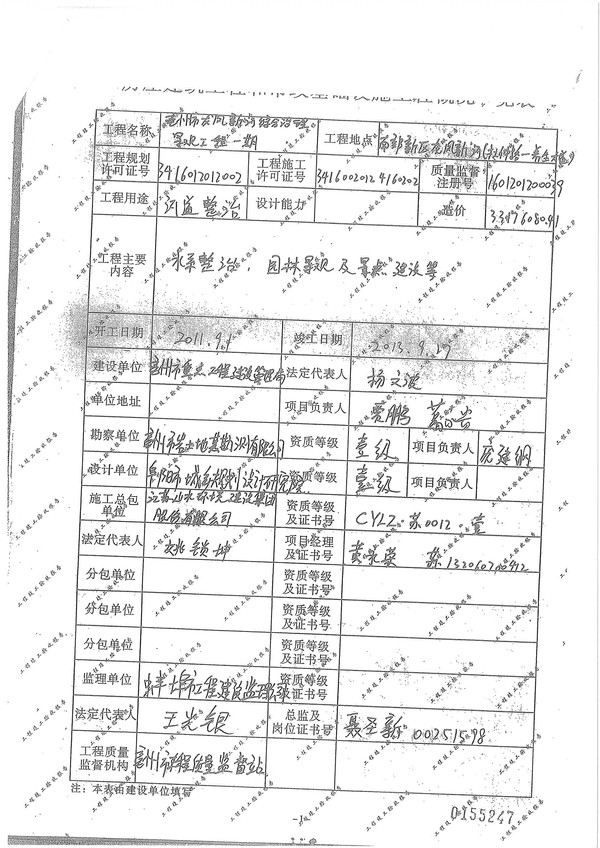 房屋建筑工程和市政基础设施工程概况一览表
工程名称 亳州市龙凤新河综合治理
景观工程一期 工程地点
工程规划许可证号 3416012012002 工程施工许可证号 3416002012 4160202 质量监督注册号 1601201200039
工程用途 河道整治 设计能力 造价
工程主要内容 水系整治、园林景观及景点建设等
开工日期 2011.9.1 竣工日期 2013.9.29
建设单位 亳州市重点工程建设管理局 法定代表人 杨文
单位地址 项目负责人 贾鹏
勘察单位 资质等级 壹级 项目负责人
设计单位 阜阳市城乡规划设计研究院 资质等级 壹级 项目负责人
施工总包单位 江苏山水环境建设集团
股份有限公司 资质等级及证书号 CYLZ·苏0012·壹
法定代表人 姚锁坤 项目经理及证书号 苏
分包单位 资质等级及证书号
分包单位 资质等级及证书号
分包单位 资质等级及证书号
监理单位 蚌埠市工程建设监理 
法定代表人 王光银 总监及岗位证书号 聂圣新 00251598
工程质量监督机构 亳州市工程质量监督站
注：本表由建设单位填写
-1-
0155247
工程竣工验收报告